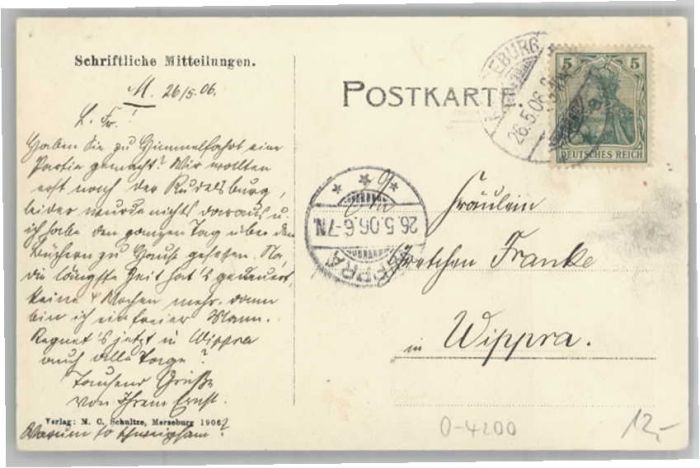 Schriftliche Mitteilungen.
M. 26/5.06.
L. Fr.!
Haben Sie zu Himmelfahrt eine
Partie gemacht? Wir wollten
erst nach der Rudelsburg,
leider wurde nichts daraus u.
ich habe den ganzen Tag über den
Büchern zu Hause gesessen. Na,
die längste Zeit hat's gedauert,
keine 4 Wochen mehr, dann
bin ich ein freier Mann.
Regnet's jetzt in Wippra
auch alle Tage?
Tausend Grüße
von Ihrem Ernst.
Verlag: M. C. Schultze, Merseburg 1906
Warum so schweigsam?
POSTKARTE
EBURG
26.5.06.
5 5
DEUTSCHES REICH
26.5.06.6-7N.
WIPPRA
Fräulein
Gretchen Franke
in Wippra.
0-4200
12,-